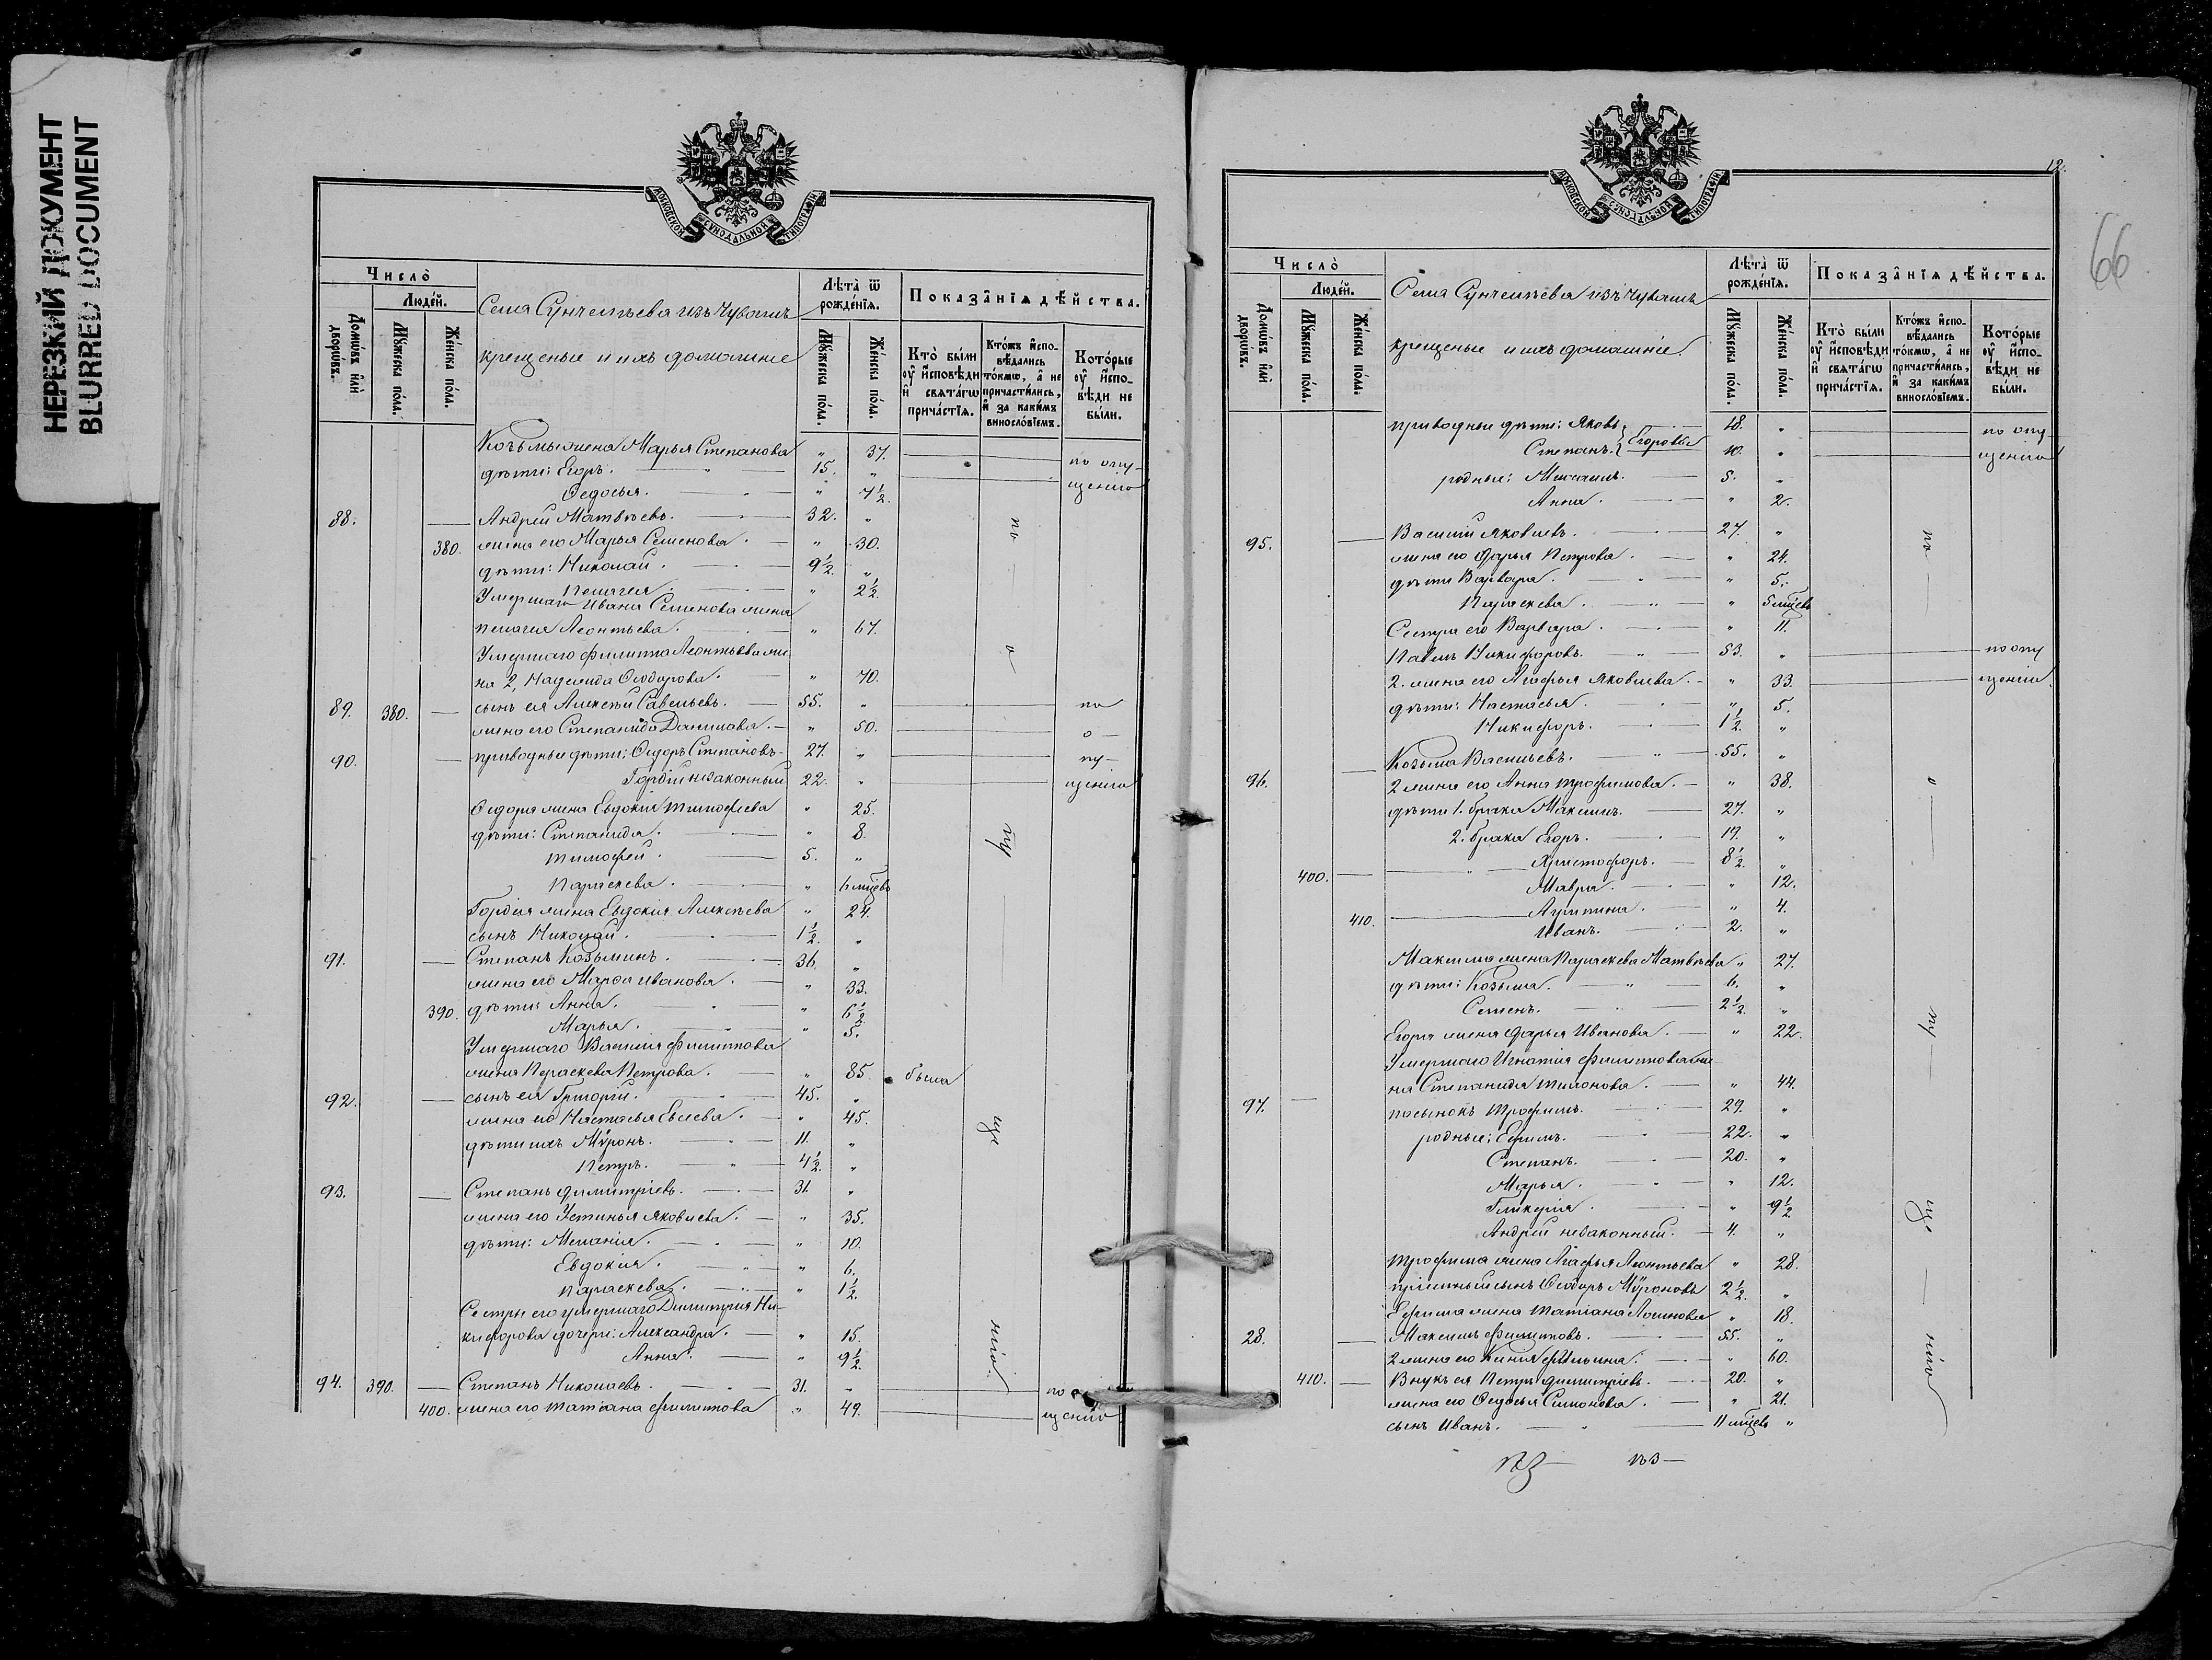 НЕРЕЗКИЙ ДОКУМЕНТ
BLURRED DOCUMENT
МОСКОВСКОЙ СѴНОДАЛЬНОЙ ТИПОГРАФІИ
Число̀
Людéй.
Домѡ́въ и҆лѝ дворѡ́въ.
Мꙋ́жеска по́ла.
Же́нска по́ла.
Села Сунчелѣева изъ Чувашъ
крещеные и ихъ домашніе
Лѣта̀ ѿ рожде́нїѧ.
Мꙋ́жеска по́ла.
Же́нска по́ла.
Показа̂нїѧ дѣ́йства.
Кто̀ бы́ли ᲂу҆ и҆сповѣди и҆ свѧта́гѡ прича́стїѧ.
Кто́жъ и҆спо-вѣдались то́кмѡ, а҆ не причасти́лись, и҆ за каки́мъ винослóвїемъ.
Кото́рые ᲂу҆ и҆спо-вѣди не бы́ли.
Козьмы жена Марья Степанова " 37. по опу-
дѣти: Егоръ. 15. "
Ѳедосья. " 7½. щенію
88. Андрей Матвѣевъ. 32. "
380. жена его Марья Семенова. " 30.
дѣти: Николай. 9½. "
Пелагея " 2½.
Умершаго Ивана Семенова жена
Пелагея Леонтьева. " 67.
Умершаго Филиппа Леонтьева же-
на 2, Надежда Ѳеодорова. " 70.
89. 380. сынъ ея Алексѣй Савельевъ. 55. " по
жена его Степанида Данилова. " 50. о-
90. приводные дѣти: Ѳедоръ Степановъ 27. " пу-
Гордѣй незаконный 22. " щенію
Ѳедора жена Евдокія Тимофеева " 25.
дѣти: Степанида. " 8.
Тимофей. 5. "
Параскева. " 6 мцевъ
Гордѣя жена Евдокія Алексѣева " 24.
сынъ Николай. 1½. "
91. Степанъ Козьминъ. 36. "
жена его Марфа Иванова. " 33.
390. дѣти: Анна. " 6½
Марья. " 5.
Умершаго Василія Филиппова
жена Параскева Петрова. " 85. была
92. сынъ ея Григорій. 45. "
жена его Настасья Евсеева. " 45.
дѣти ихъ Мѵронъ. 11. "
Петръ. 4½. "
93. Степанъ Димитріевъ. 31. "
жена его Устинья Яковлева. " 35.
дѣти: Меланія. " 10.
Евдокія. " 6.
Параскева. " 1½.
Сестры его умершаго Димитрія Ни-
кифорова дочери: Александра. " 15.
Анна. " 9½.
94. 390. Степанъ Николаевъ. 31. " по о
400. жена его Татіана Филиппова " 49. щенію
по о пу ще нію.
12.
66
МОСКОВСКОЙ СѴНОДАЛЬНОЙ ТИПОГРАФІИ
Число̀
Людéй.
Домѡ́въ и҆лѝ дворѡ́въ.
Мꙋ́жеска по́ла.
Же́нска по́ла.
Села Сунчелѣева изъ Чувашъ
крещеные и ихъ домашніе.
Лѣта̀ ѿ рожде́нїѧ.
Мꙋ́жеска по́ла.
Же́нска по́ла.
Показа̂нїѧ дѣ́йства.
Кто̀ бы́ли ᲂу҆ и҆сповѣди и҆ свѧта́гѡ прича́стїѧ.
Кто́жъ и҆спо-вѣдались то́кмѡ, а҆ не причасти́лись, и҆ за каки́мъ винослóвїемъ.
Кото́рые ᲂу҆ и҆спо-вѣди не бы́ли.
приводные дѣти: Яковъ. 18. " по опу-
Степанъ. Егоровы 10. " щенію
родные: Михаилъ. 5. "
Анна. " 2.
95. Василій Яковлевъ. 27. "
жена его Дарья Петрова. " 24.
дѣти Варвара. " 5.
Параскева. " 5 мцевъ
Сестра его Варвара. " 11.
Павелъ Никифоровъ. 53. " по опу
2. жена его Агафья Яковлева. " 33. щенію.
дѣти: Настасья. " 5.
Никифоръ. 1½. "
96. Козьма Васильевъ. 55. "
2 жена его Анна Трофимова. " 38.
дѣти 1. брака Максимъ. 27. "
2. брака Егоръ. 19. "
400. " Христофоръ. 8½. "
Мавра. " 12.
410. Агрипина. " 4.
Иванъ. 2. "
Максима жена Параскева Матвѣева " 27.
дѣти: Козьма. 6. "
Семенъ. 2½. "
Егора жена Дарья Иванова. " 22.
Умершаго Игнатія Филиппова же-
на Степанида Тихонова. " 44.
97. пасынокъ Трофимъ. 29. "
родные: Ефимъ. 22. "
Степанъ. 20. "
Марья. " 12.
Гликерія. " 9½
Андрей незаконный. 4. "
Трофима жена Агафья Леонтьева " 28.
пріемный сынъ Ѳеодоръ Мѵроновъ 2½. "
Ефима жена Татіана Логинова " 18.
28. Максимъ Филипповъ. 55. "
2 жена его Ильина. " 60.
410. Внукъ ея Петръ Димитріевъ. 20. "
жена его Ѳедосья Симонова. " 21.
сынъ Иванъ. 11 мцевъ "
по о пу ще нію